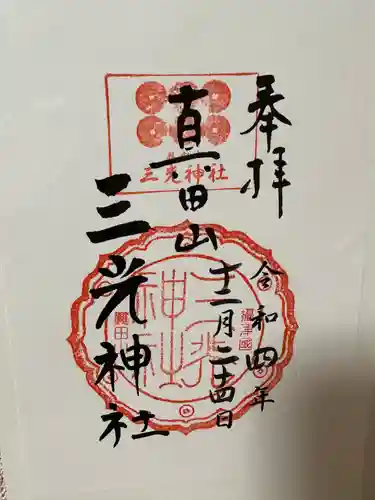 奉拝
真田山
三光神社
三光神社
令和四年
十二月二十四日
攝津國